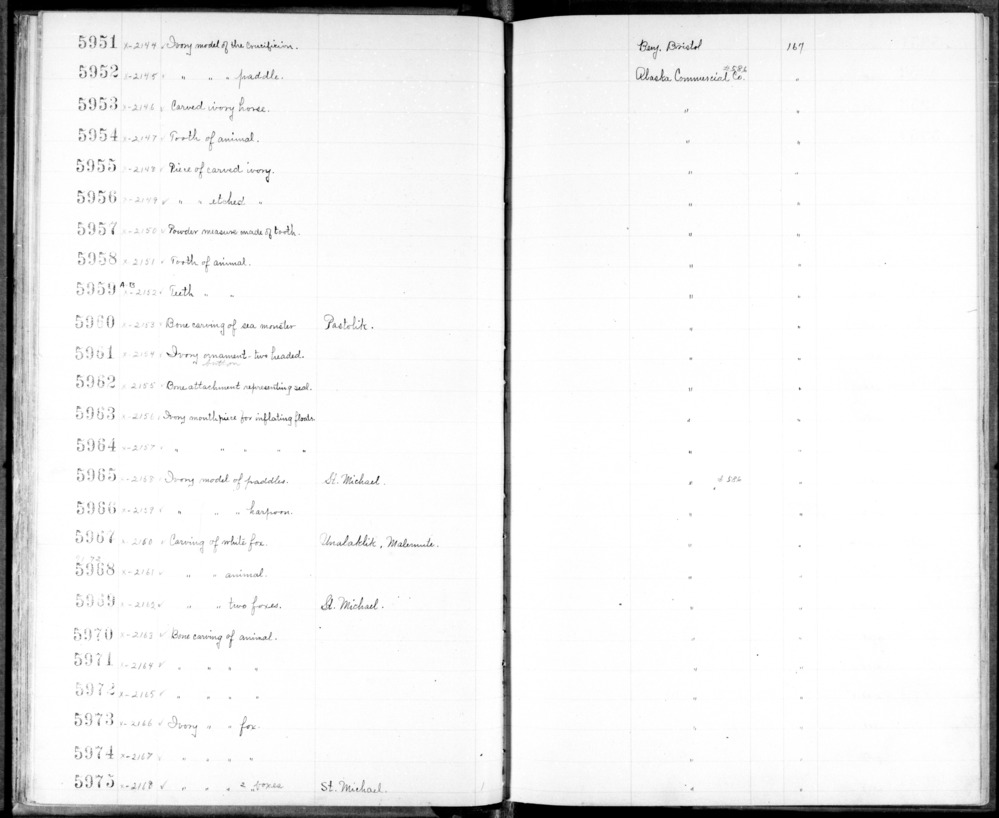 5951 x-2144 ✓ Ivory model of the crucifixion. Benj. Bristol 167
5952 x-2145 ✓ " " " paddle. Alaska Commercial Co. #586 "
5953 x-2146 ✓ Carved ivory horse. " "
5954 x-2147 ✓ Tooth of animal. " "
5955 x-2148 ✓ Piece of carved ivory. " "
5956 x-2149 ✓ " " etched " " "
5957 x-2150 ✓ Powder measure made of tooth. " "
5958 x-2151 ✓ Tooth of animal. " "
5959 A.B x-2152 ✓ Teeth " " " "
5960 x-2153 ✓ Bone carving of sea monster Pastolik. " "
5961 x-2154 ✓ Ivory ornament - two headed. " "
button
5962 x-2155 ✓ Bone attachment representing seal. " "
5963 x-2156 ✓ Ivory mouthpiece for inflating floats. " "
5964 x-2157 ✓ " " " " " " "
5965 x-2158 ✓ Ivory model of paddles. St. Michael. " #586 "
5966 x-2159 ✓ " " " harpoon. " "
5967 x-2160 ✓ Carving of white fox. Unalaklik, Malemute. " "
5968 x-2161 ✓ " " animal. " "
5969 x-2162 ✓ " " two foxes. St. Michael. " "
5970 x-2163 ✓ Bone carving of animal. " "
5971 x-2164 ✓ " " " " " "
5972 x-2165 ✓ " " " " " "
5973 x-2166 ✓ Ivory " " fox. " "
5974 x-2167 ✓ " " " " " "
5975 x-2168 ✓ " " " 2 foxes St. Michael " "